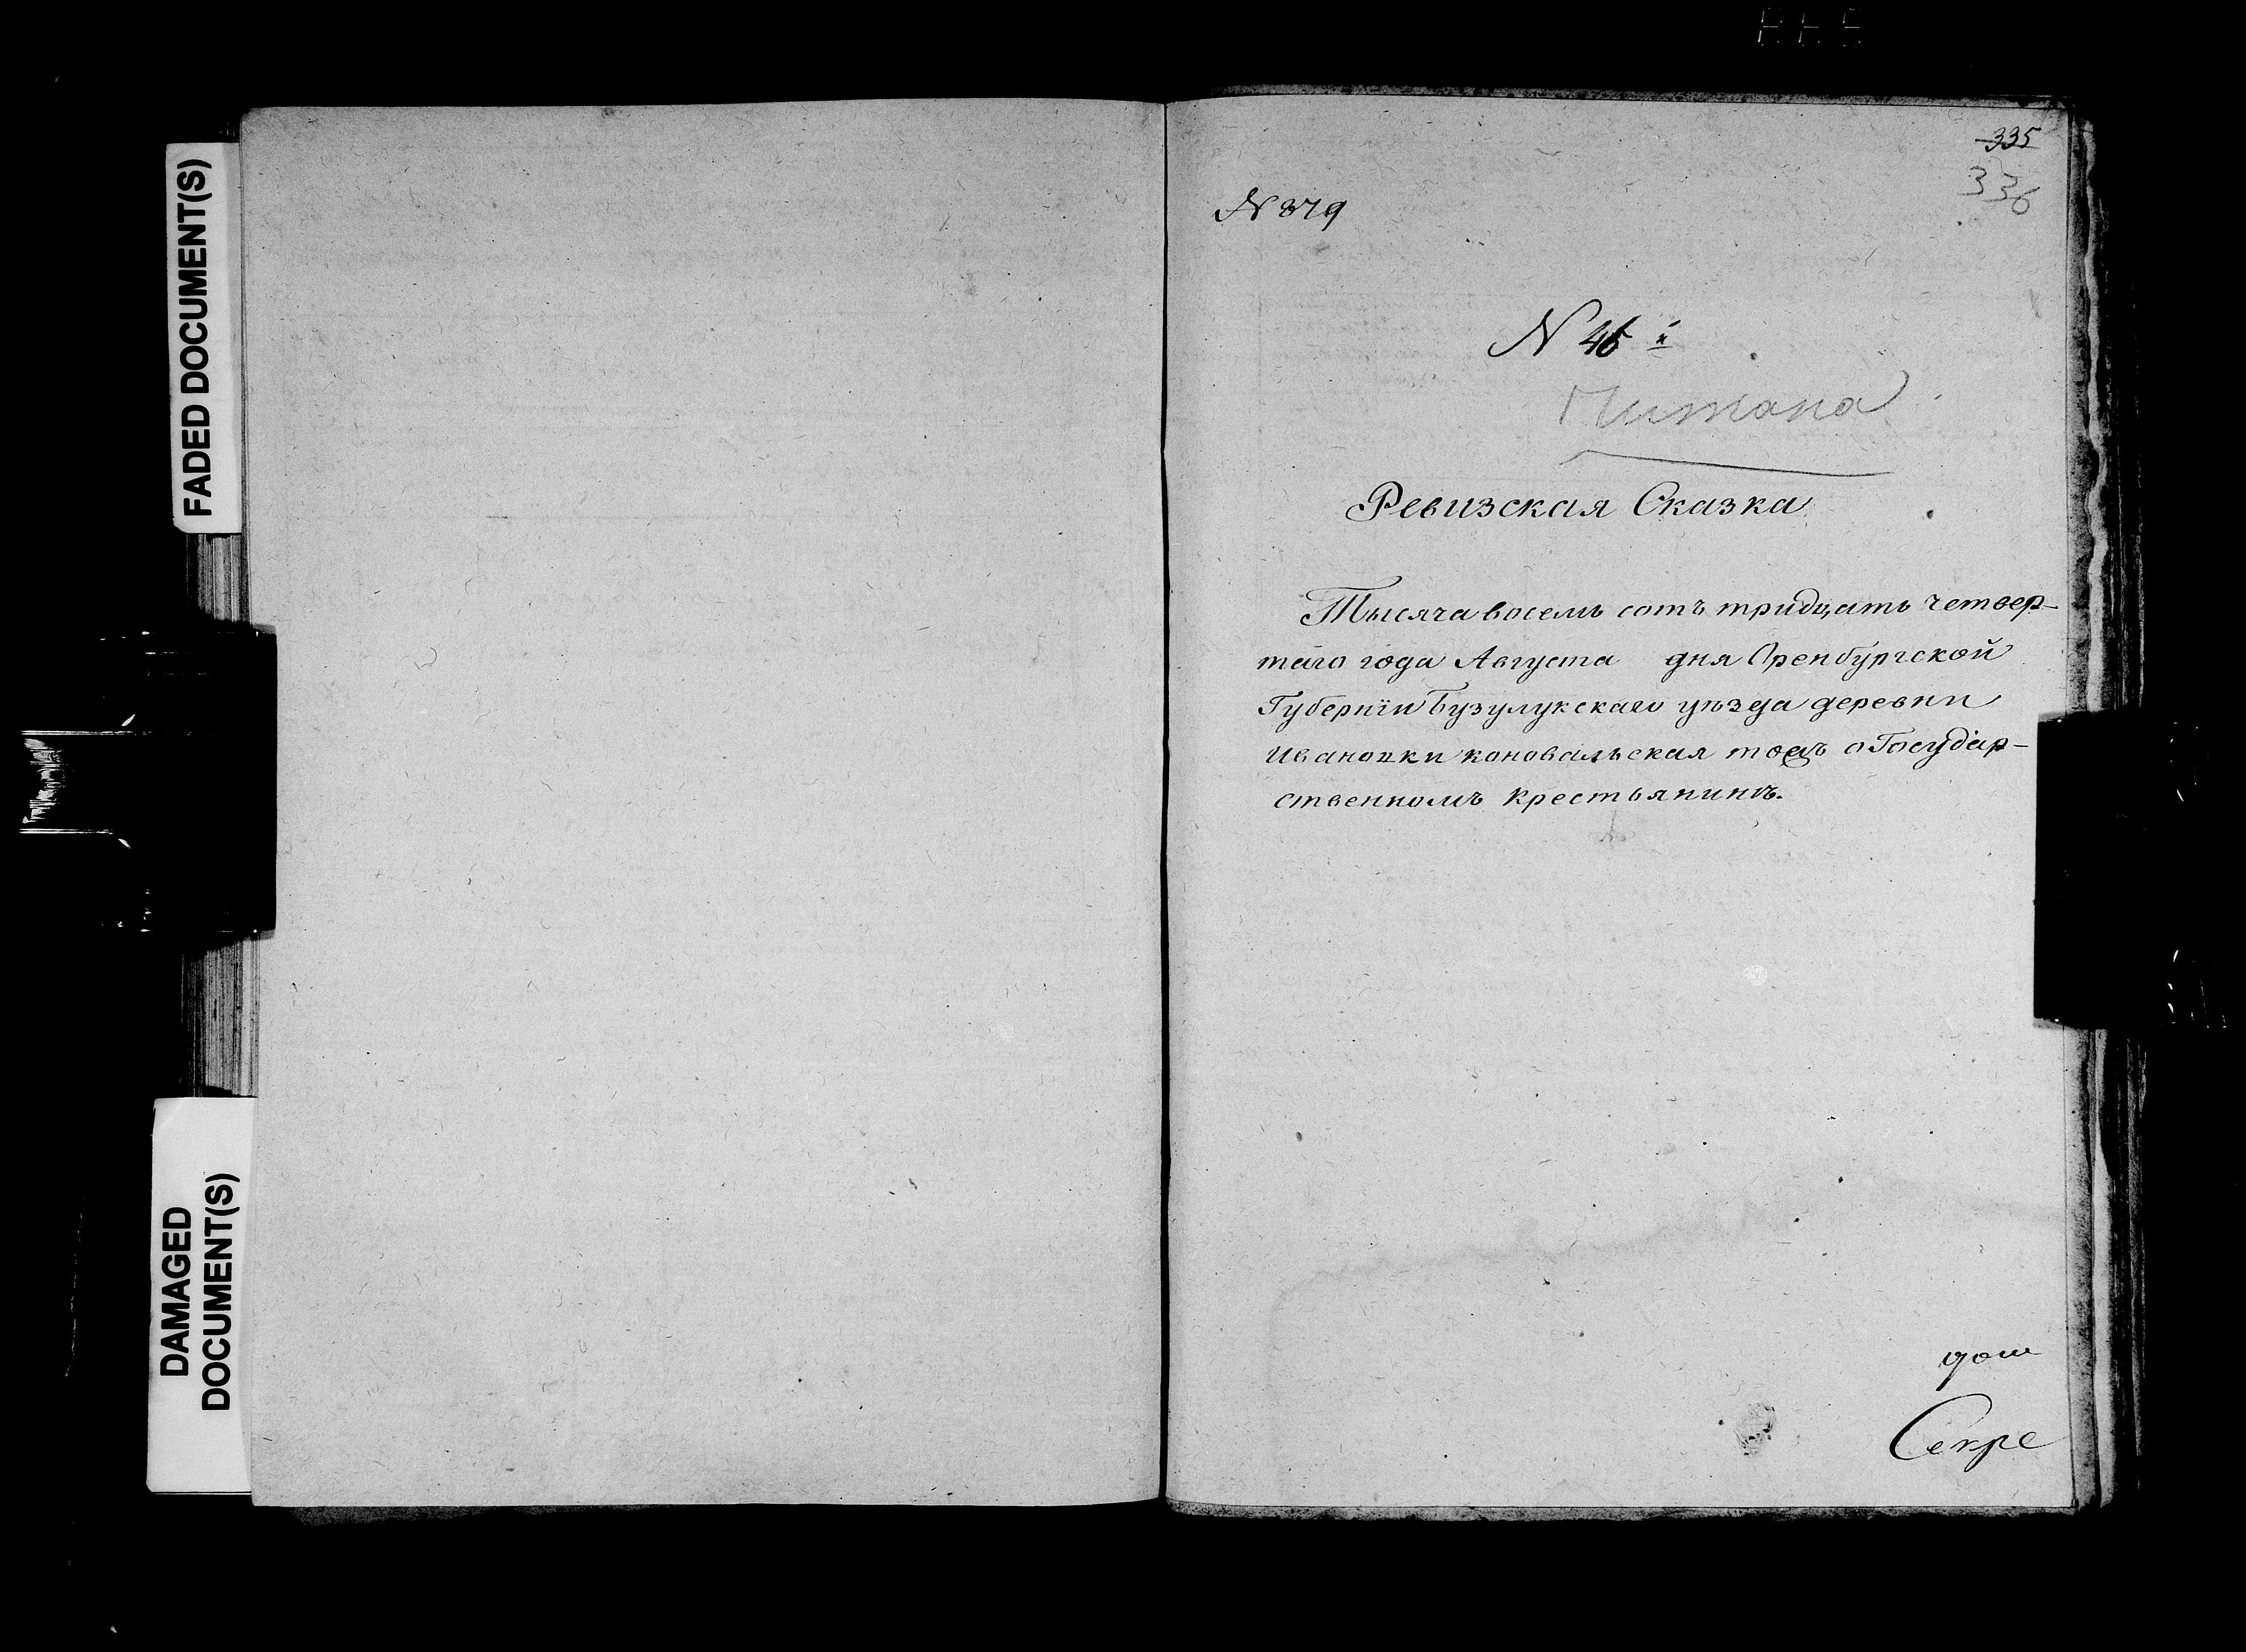 FADED DOCUMENT(S)
DAMAGED
DOCUMENT(S)
335
336
N 879
N 46 й
Ревизская Сказка
Тысяча восемь сотъ тридцать четвер-
таго года Августа дня Оренбургской
Губернїи Бузулукскаго уѣзда деревни
Ивановки коновальская тожъ о Государ-
ственномъ крестьянинѣ.
Секре